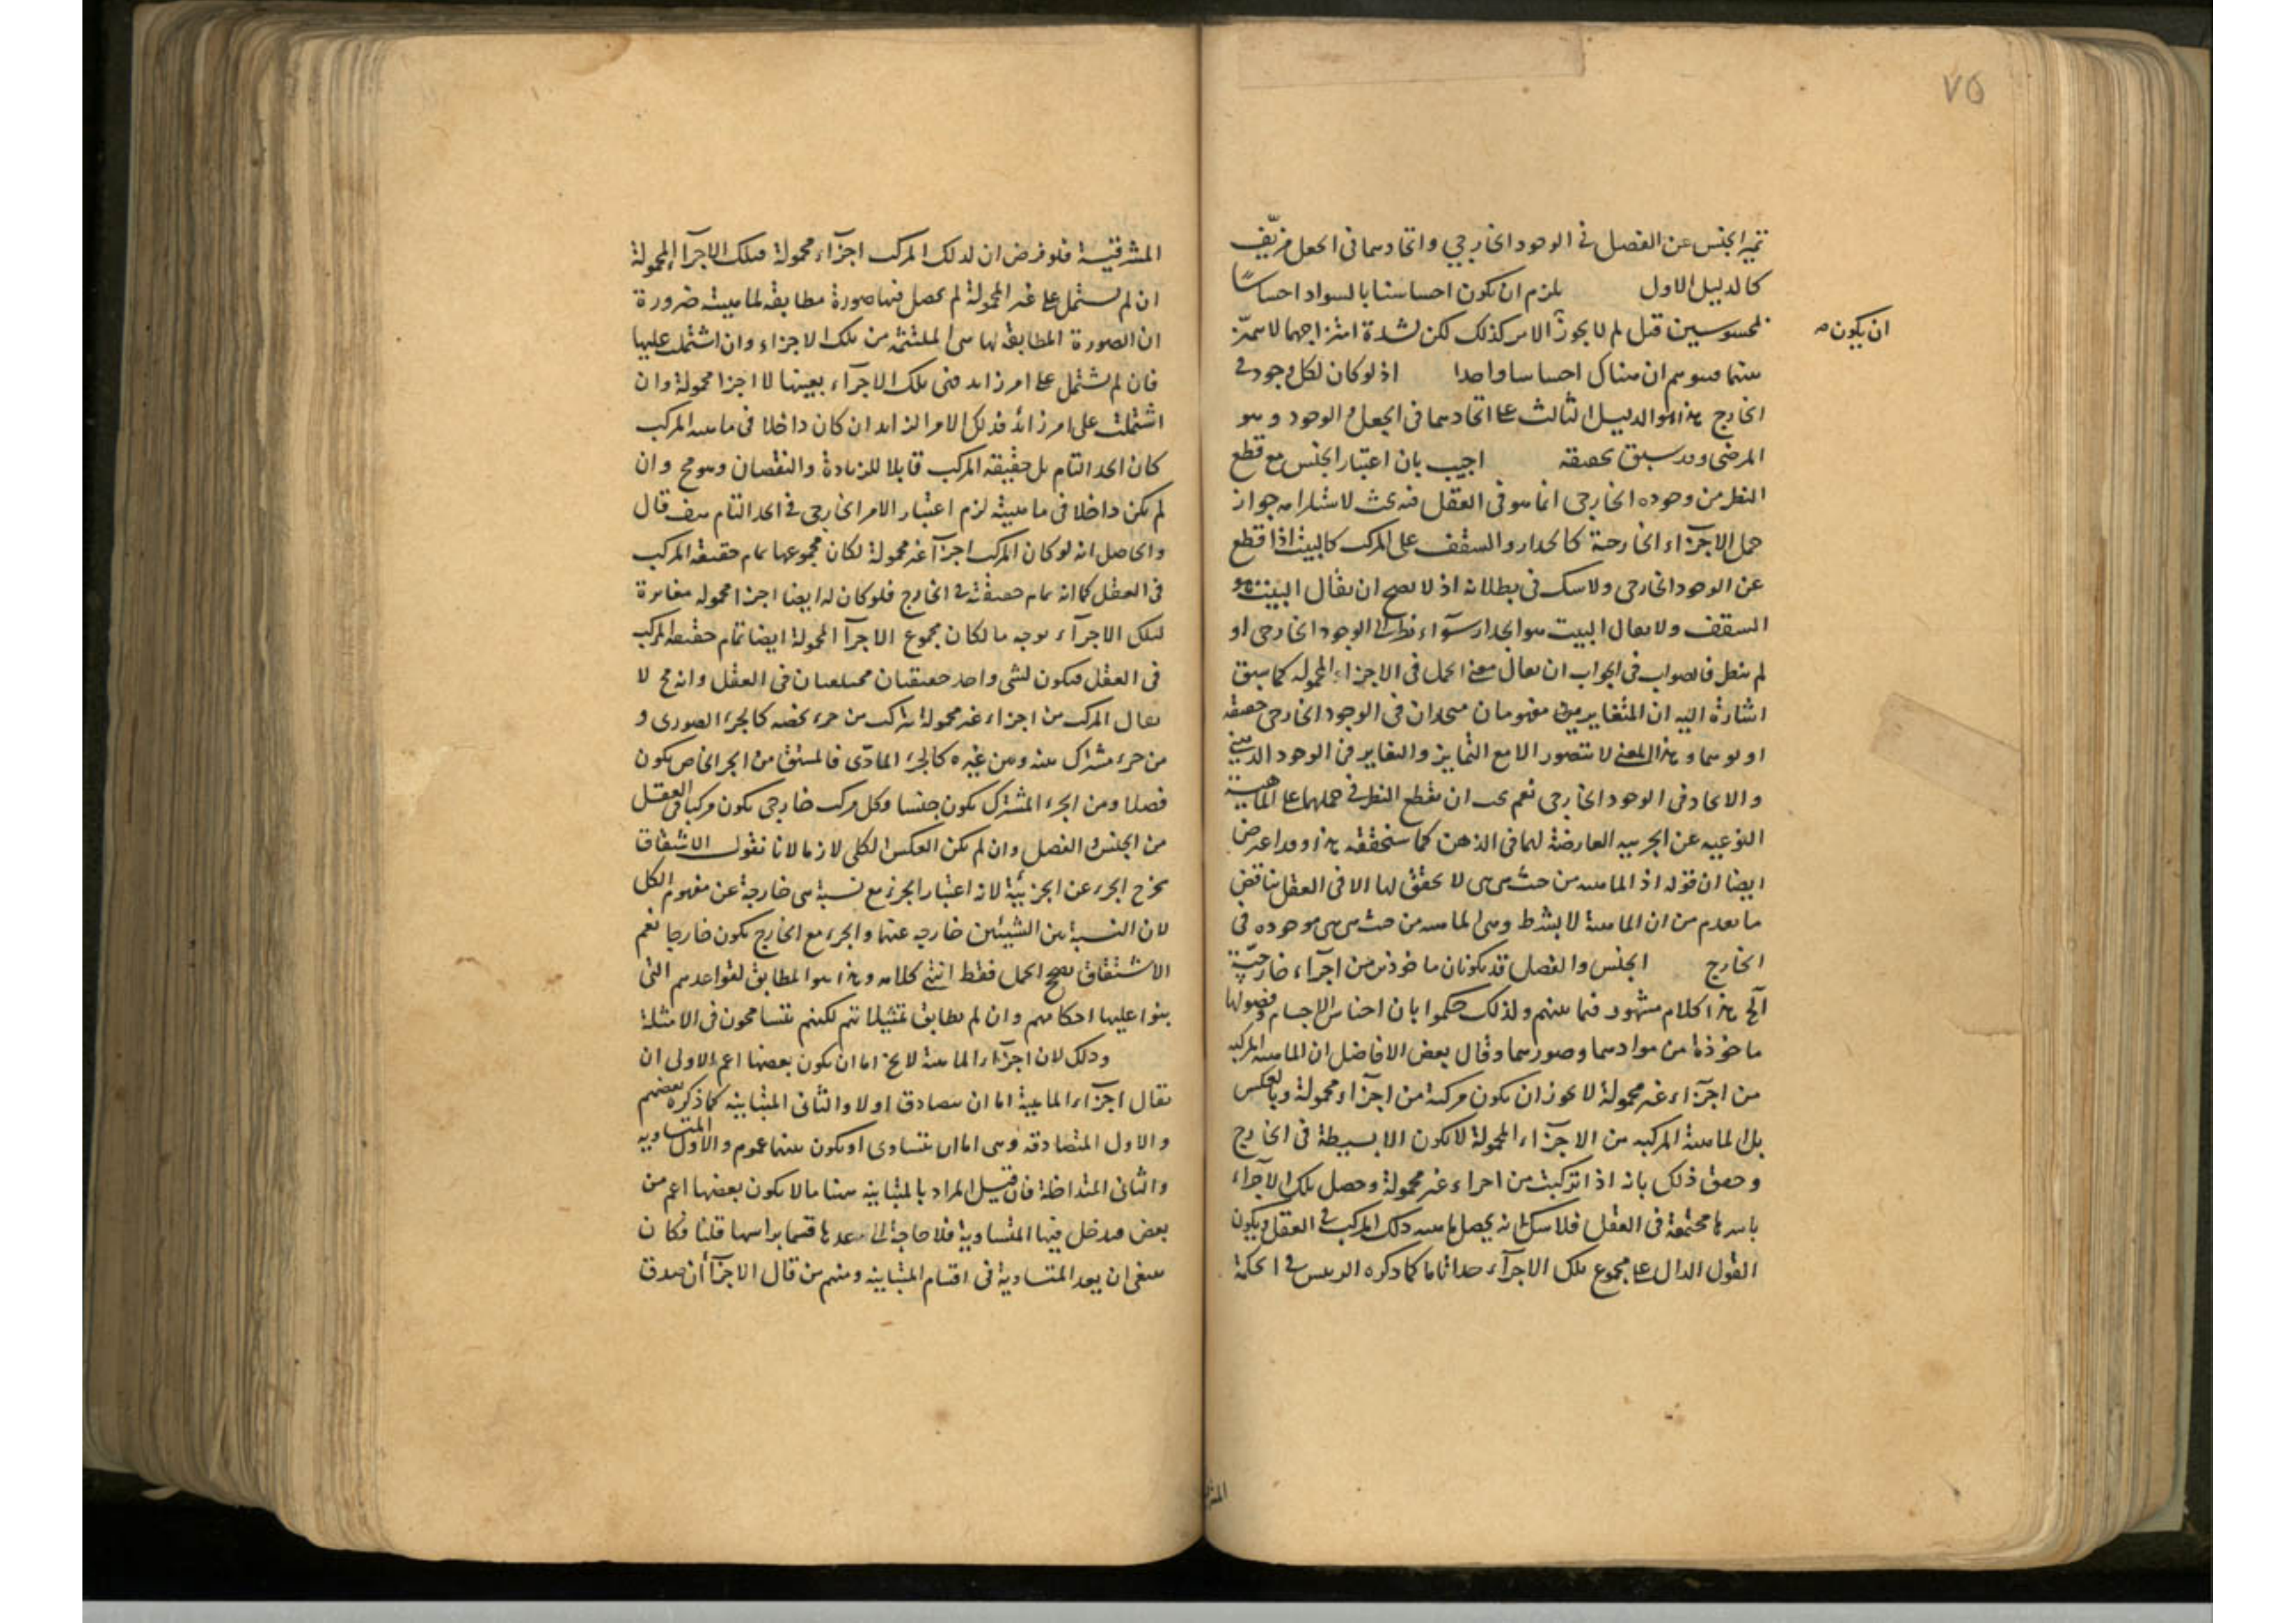 ٧٥
تميز الجنس عن الفصل في الوجود الخارجي واتحادهما في الجعل مزيّف
كالدليل الاول يلزم ان يكون احساسنا بالسواد احساسًا
بمحسوسين قيل لم لا يجوز الامر كذلك لكن لشدة امتزاجهما لا يميّز
ان يكون صح
بينهما فيتوهم ان هناك احساسا واحدا اذ لو كان لكل وجود في
الخارج هذا هو الدليل الثالث على اتحادهما في الجعل والوجود وهو
المرضى وقد سبق تحقيقه اجيب بان اعتبار الجنس مع قطع
النظر من وجوده الخارجى انما هو في العقل فيه بحث لاستلزامه جواز
حمل الاجزاء الخارجية كالجدار والسقف على المركب كالبيت اذا قطع
عن الوجود الخارجى ولا شك في بطلانه اذ لا يصح ان يقال البيت هو
السقف ولا يقال البيت هو الجدار سوآء نظر الى الوجود الخارجى او
لم ينظر فالصواب في الجواب ان يقال معنى الحمل في الاجزاء المحمولة كما سبق
اشارة اليه ان المتغايرين مفهوما متحدان في الوجود الخارجى حقيقة
او توهما وهذا المعنى لا يتصور الا مع التمايز والتغاير في الوجود الذهني
والاتحاد في الوجود الخارجى نعم يجب ان يقطع النظر في حملهما على الماهية
النوعية عن الجزئية العارضة لهما في الذهن كما سنحققه هذا وقد اعترض
ايضا ان قوله اذ الماهية من حيث هي هي لا تحقق لها الا في العقل يناقض
ما تقدم من ان الماهية لا بشرط وهى الماهية من حيث هي هي موجوده في
الخارج الجنس والفصل قد يكونان ماخوذين من اجزآء خارجيّة
الخ هذا كلام مشهور فيما بينهم ولذلك حكموا بان اجناس الاجسام وفصولها
ماخوذة من موادها وصورها وقال بعض الافاضل ان الماهية المركبة
من اجزآء غير محمولة لا يجوز ان تكون مركبة من اجزآء محمولة وبالعكس
بل الماهية المركبة من الاجزآء المحمولة لا تكون الا بسيطة في الخارج
وحقق ذلك بانه اذا تركبت من اجزاء غير محمولة وحصل تلك الاجزآء
باسرها مجتمعة في العقل فلا شك انه يحصل ماهية ذلك المركب في العقل ويكون
القول الدال على مجموع تلك الاجزآء حدا تاما كما ذكره الرئيس في الحكمة
المشرقية فلو فرض ان لذلك المركب اجزآء محمولة فتلك الاجزآء المحمولة
ان لم تشتمل على غير المحمولة لم يحصل منها صورة مطابقة لماهيته ضرورة
ان الصورة المطابقة لها هى الملتئمة من تلك الاجزاء وان اشتملت عليها
فان لم تشتمل على امر زايد فهى تلك الاجزآء بعينها لا اجزا محمولة وان
اشتملت على امر زائد فذلك الامر الزايد ان كان داخلا في ماهية المركب
كان الحد التام بل حقيقة المركب قابلا للزيادة والنقصان وهو مح وان
لم يكن داخلا في ماهيته لزم اعتبار الامر الخارجى في الحد التام هف قال
والحاصل انه لو كان للمركب اجزآ غير محمولة لكان مجموعها تمام حقيقة المركب
في العقل كما انه تمام حقيقته في الخارج فلو كان له ايضا اجزا محمولة مغايرة
لتلك الاجزآء بوجه ما لكان مجموع الاجزآ المحمولة ايضا تمام حقيقة المركب
في العقل فيكون لشى واحد حقيقتان مختلفتان في العقل وانه مح لا
يقال المركب من اجزاء غير محمولة يتركب من جزء يخصه كالجزء الصورى و
من جزء مشترك بينه وبين غيره كالجزء المادّى فالمشتق من الجزء الخاص يكون
فصلا ومن الجزء المشترك يكون جنسا وكل مركب خارجى يكون مركبا في العقل
من الجنس والفصل وان لم يكن العكس الكلى لازما لانا نقول الاشتقاق
يخرج الجزء عن الجزئية لانه اعتبار الجزء مع نسبة هى خارجة عن مفهوم الكل
لان النسبة بين الشيئين خارجه عنهما والجزء مع الخارج يكون خارجا نعم
الاشتقاق يصحح الحمل فقط انتهى كلامه وهذا هو المطابق لقواعدهم التى
بنوا عليها احكامهم وان لم يطابق تمثيلاتهم لكنهم يتسامحون في الامثلة
وذلك لان اجزآء الماهية لا يخ اما ان يكون بعضها اعم الاولى ان
يقال اجزآء الماهية اما ان يتصادق اولا والثانى المتباينه كما ذكره بعضهم
والاول المتصادقه وهى اما ان يتساوى او يكون بينهما عموم والاول المتساويه
والثانى المتداخلة فان قيل المراد بالمتباينه ههنا ما لا يكون بعضها اعم من
بعض فيدخل فيها المتساوية فلا حاجة الى عدها قسما براسها قلنا فكان
ينبغى ان يعد المتساوية في اقسام المتباينه ومنهم من قال الاجزآ ان صدق